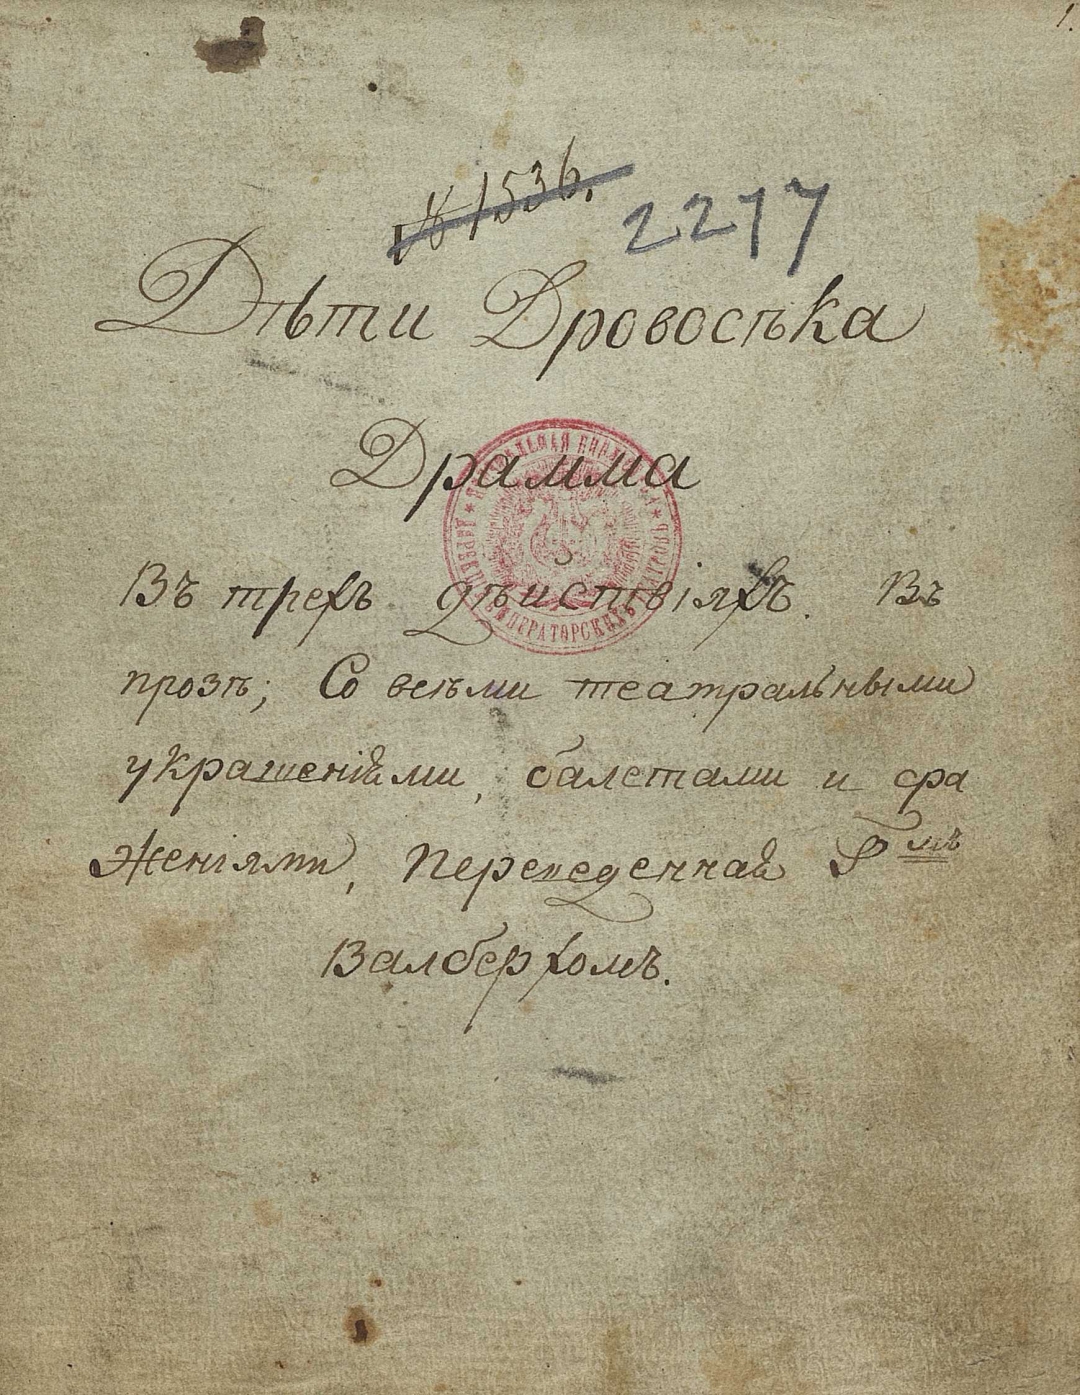 1.
№ 1536.
2277
Дѣти Дровосѣка
Драмма
Въ трехъ дѣйствіяхъ. Въ
прозѣ; Со всѣми театральными
украшеніями, балетами и сра
женіями, Переведенная Гмъ
Валберхомъ.
ЦЕНТРАЛЬНАЯ БИБЛІОТЕКА
ИМПЕРАТОРСКИХЪ ТЕАТРОВЪ